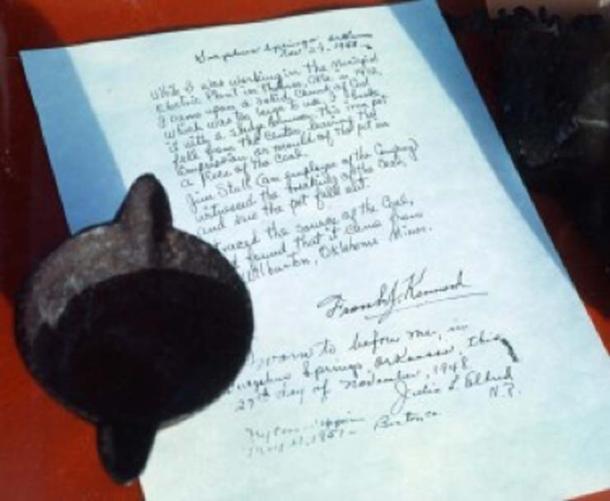 Sulphur Springs, Arkan
Nov. 27, 1948
While I was working in the Municipal
Electric Plant in Thomas, Okla. in 1912,
I came upon a solid chunk of coal
which was too large to use. I broke
it with a sledge hammer. This iron pot
fell from the center leaving the
impression or mould of the pot in
a piece of the coal.
Jim Stull (an employee of the Company)
witnessed the breaking of the coal,
and saw the pot fall out.
traced the source of the coal,
found that it came from
Wilburton, Oklahoma Mines.
Frank J. Kennard
sworn to before me, in
Sulphur Springs, Arkansas, this
27th day of November, 1948
Julia L. Eldred
N.P.
1951 – Benton Co.